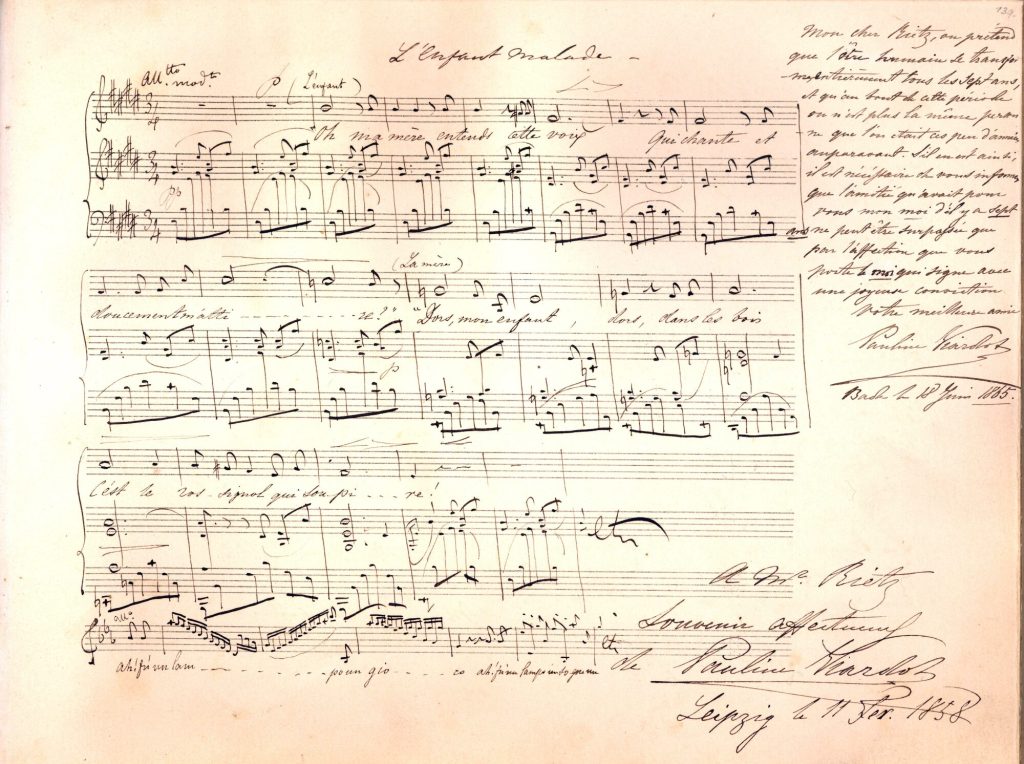 139.
L'Enfant Malade
All.tto mod.to
p (L'enfant)
"Oh ma mère entends cette voix Qui chante et
pp
(La mère)
doucement m'atti - - - re?" "Dors, mon enfant, dors, dans les bois
p
C'est le ros-signol qui soupi - - - re!
etc
all.o
ah! fu un lam - - - - po un gio - - - co ah! fu un lampo un gio
etc
A Mr. Rietz
Souvenir affectueux
de Pauline Viardot
Leipzig le 11 Fev. 1858
Mon cher Rietz, on prétend
que l'être humain se transfor-
me entièrement tous les sept ans,
et qu'au bout de cette période
on n'est plus la même person
ne que l'on était ces peu d'années
auparavant. S'il en est ainsi,
il est nécessaire de vous informer
que l'amitié qu'avait pour
vous mon moi d'il y a sept
ans ne peut être surpassée que
par l'affection que vous
porte le moi qui signe avec
une joyeuse conviction
Votre meilleure amie
Pauline Viardot
Bade le 18 Juin 1865.